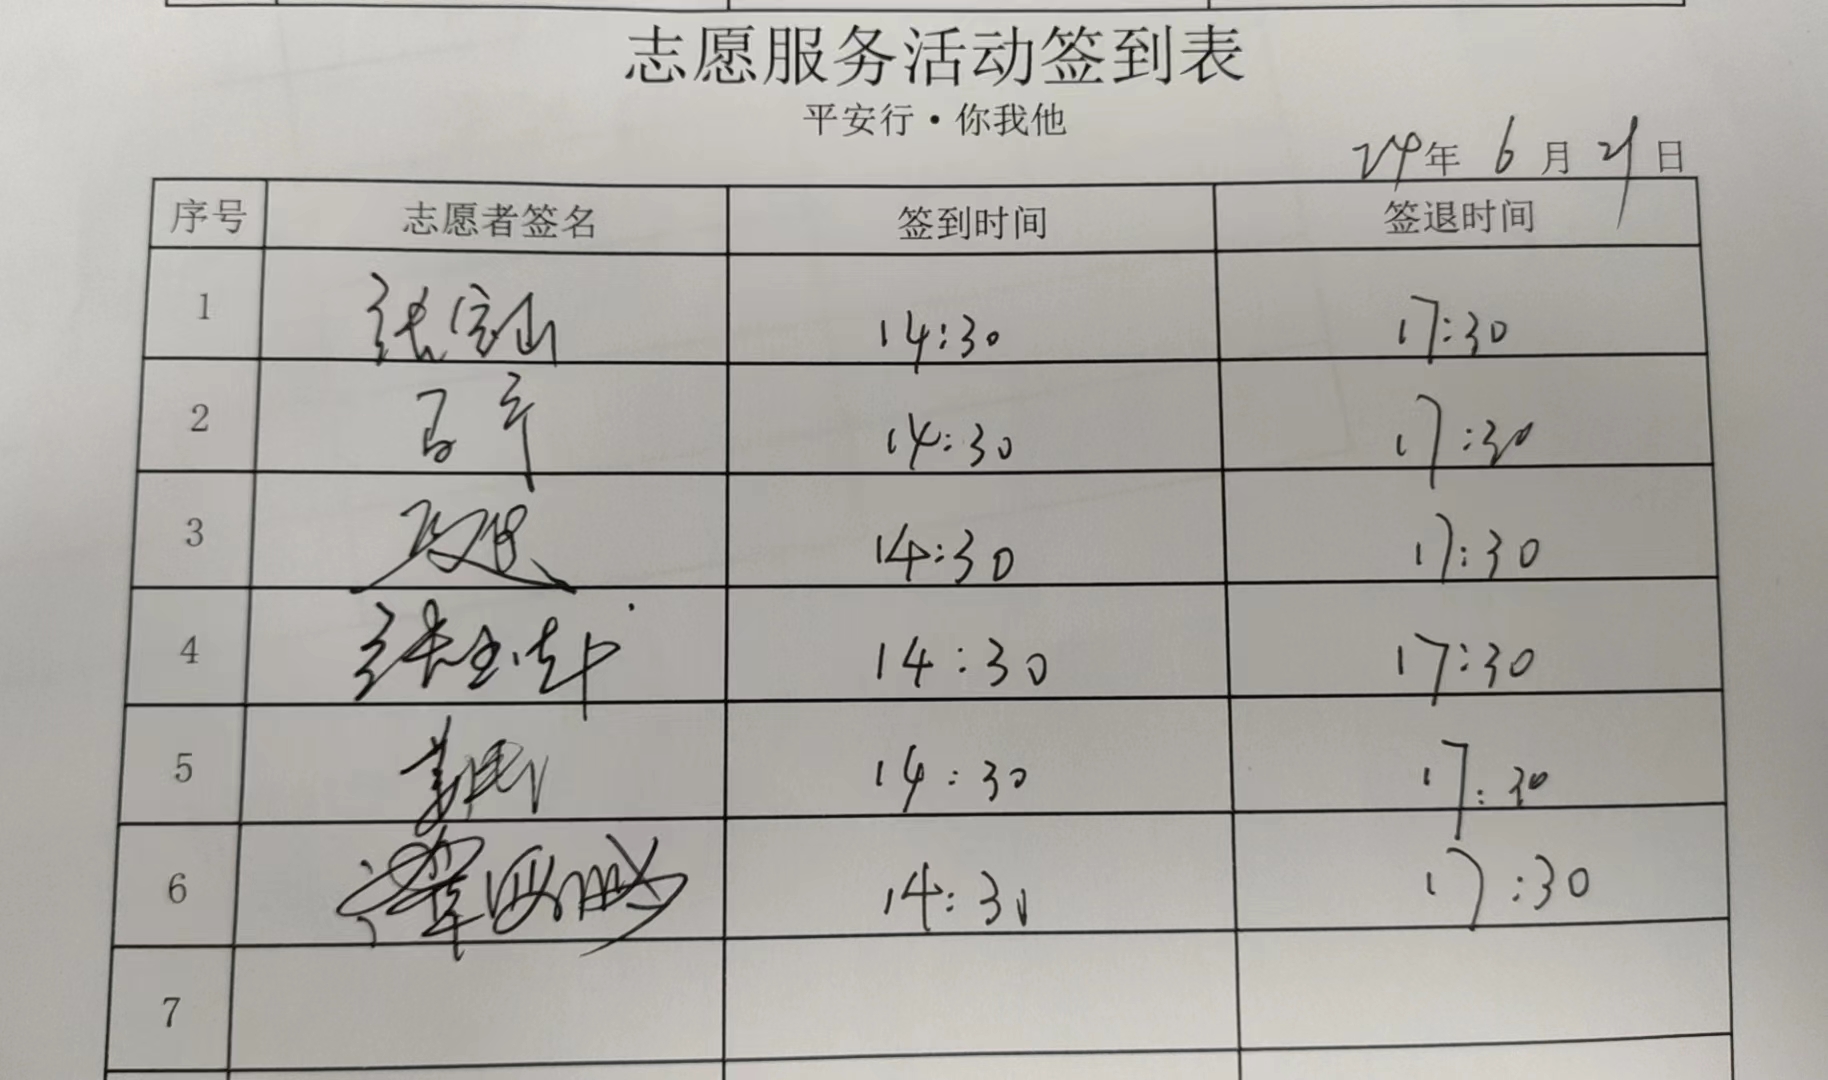 志愿服务活动签到表
平安行·你我他
24年 6月21日
序号 志愿者签名 签到时间 签退时间
1 14:30 17:30
2 14:30 17:30
3 14:30 17:30
4 14:30 17:30
5 14:30 17:30
6 14:30 17:30
7